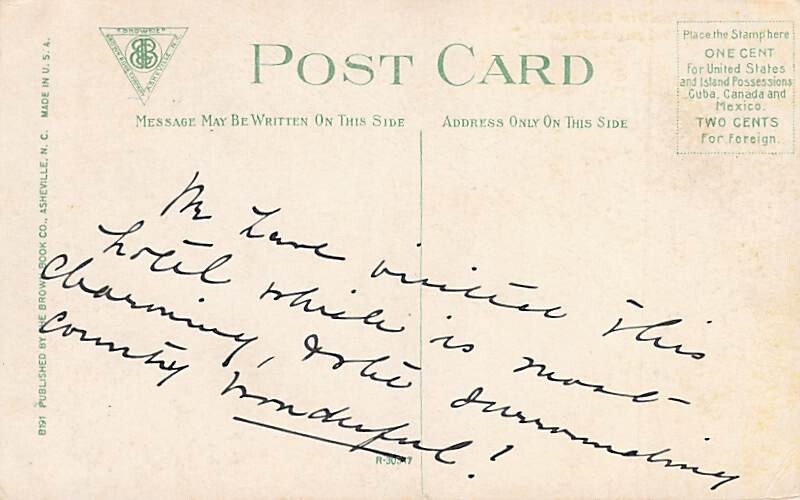 "BROWNIE"
BROWN BOOK COMPANY
ASHEVILLE N.C.
BB
POST CARD
MESSAGE MAY BE WRITTEN ON THIS SIDE
ADDRESS ONLY ON THIS SIDE
Place the Stamp here
ONE CENT
For United States
and Island Possessions
Cuba, Canada and
Mexico.
TWO CENTS
For Foreign.
B191 PUBLISHED BY THE BROWN BOOK CO., ASHEVILLE, N. C. MADE IN U. S. A.
We have visited this
hotel which is most
charming, & the surrounding
country wonderful!